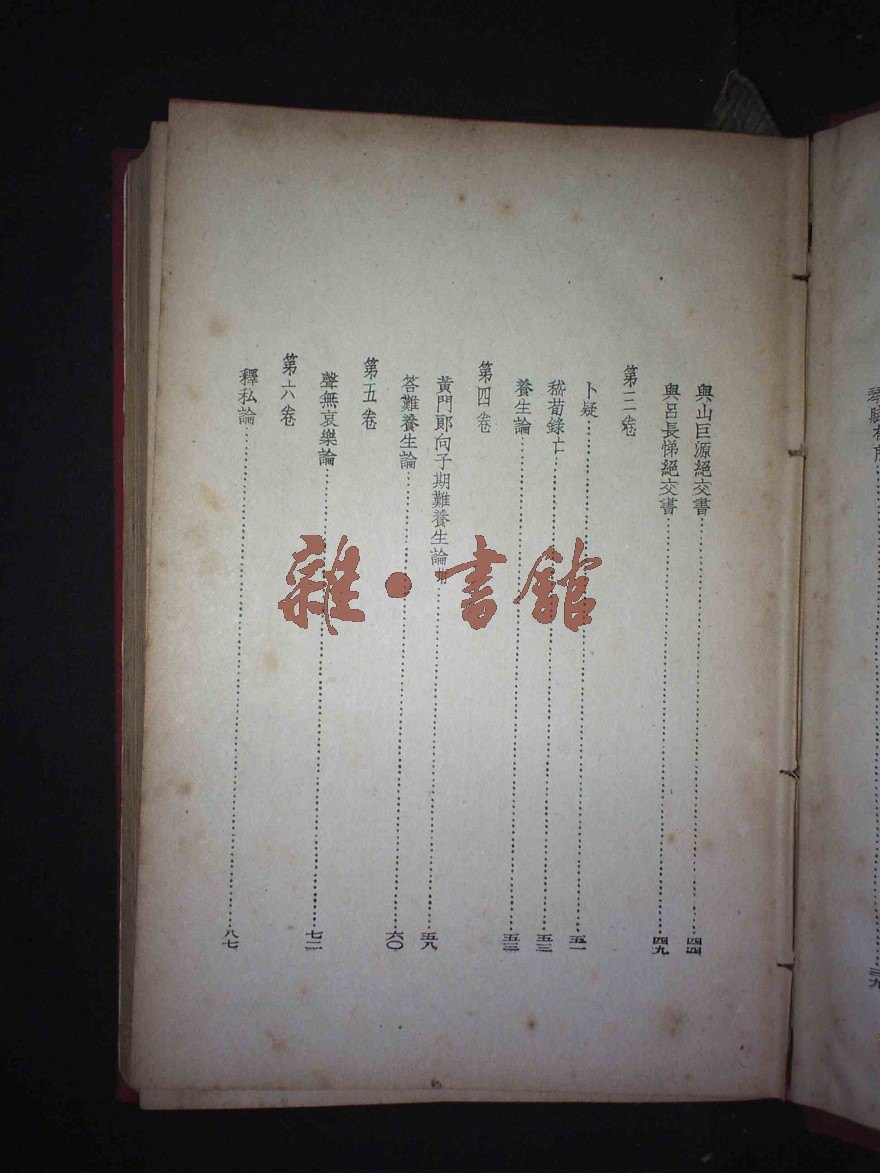 與山巨源絕交書……四四
與呂長悌絕交書……四九
第三卷
卜疑……五一
嵇荀錄亡……五三
養生論……五三
第四卷
黃門郞向子期難養生論……五八
答難養生論……六〇
第五卷
聲無哀樂論……七二
第六卷
釋私論……八七
雜·書館